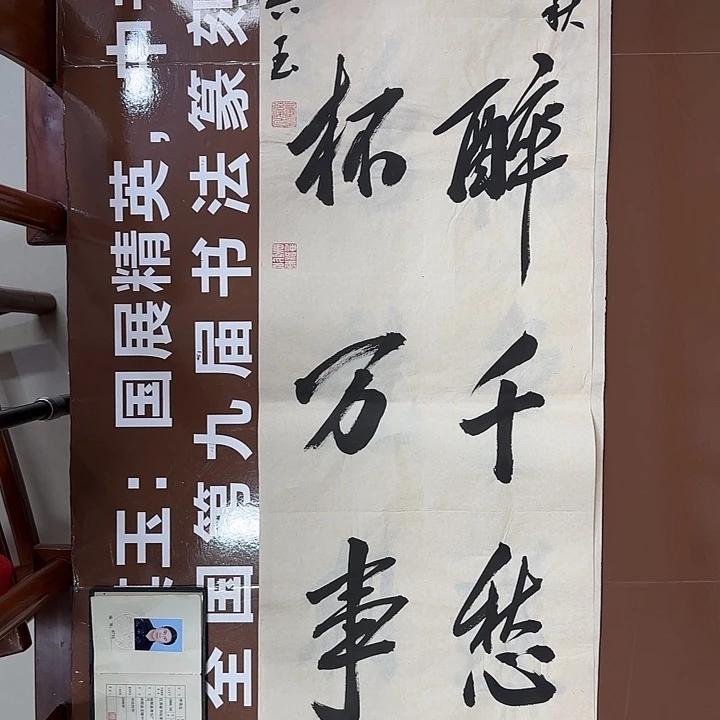 秋
醉千愁
杯万事
玉
玉:国展精英,中
全国第九届书法篆刻